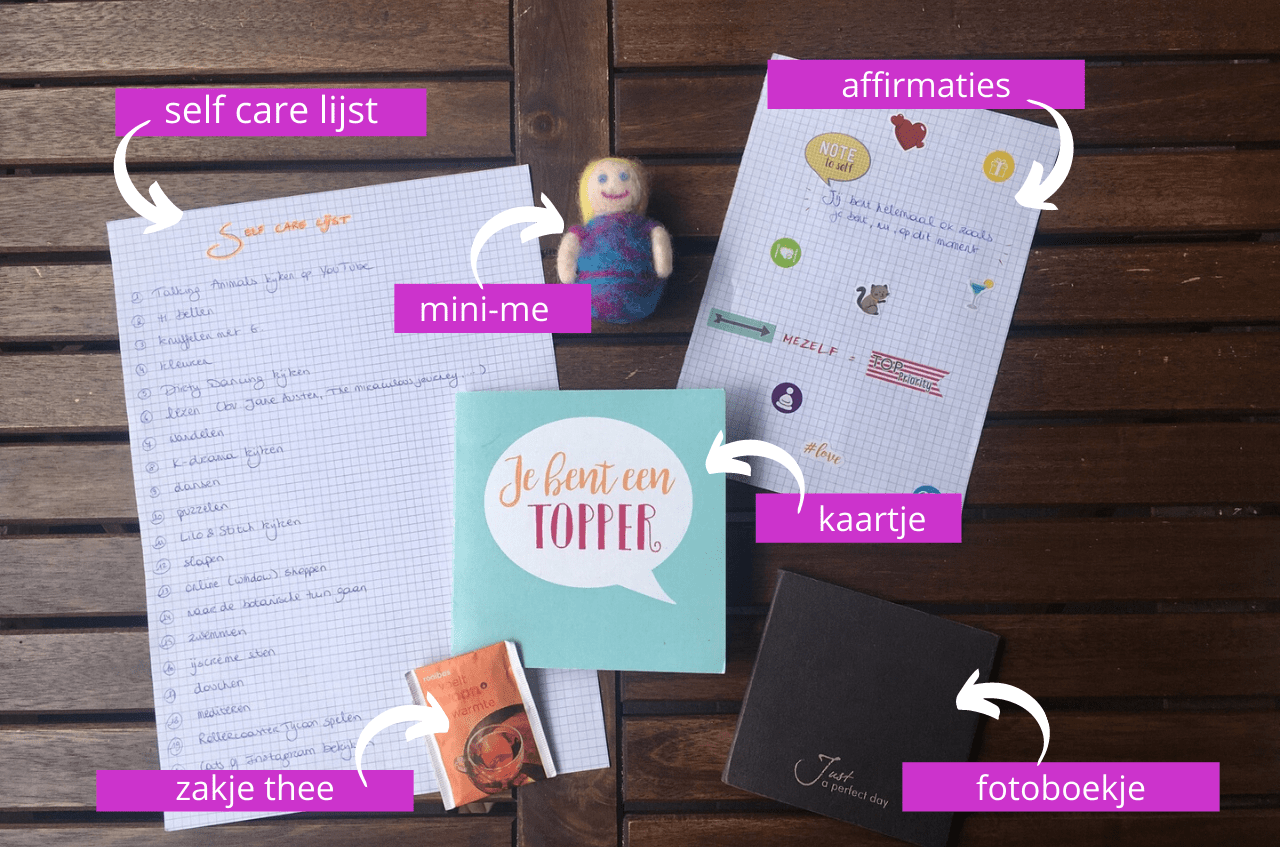 self care lijst
affirmaties
mini-me
kaartje
zakje thee
fotoboekje
SELF CARE LIJST
① Talking Animals kijken op YouTube
② bellen
③ knuffelen met
④ kleuren
⑤ Dirty Dancing kijken
⑥ lezen (bv Jane Austen, The miraculous journey )
⑦ wandelen
⑧ K-drama kijken
⑨ dansen
⑩ puzzelen
⑪ Lilo & Stitch kijken
⑫ slapen
⑬ online (window) shoppen
⑭ naar de botanische tuin gaan
⑮ zwemmen
⑯ ijscrème eten
⑰ douchen
⑱ mediteren
⑲ Rollercoaster Tycoon spelen
Cats of Instagram bekijken
NOTE
to self
Jij bent helemaal ok zoals
je bent, nu, op dit moment
MEZELF = TOP
PRIORITY
#love
Je bent een
TOPPER
rooibos
voelt
warmte
Just
a perfect day